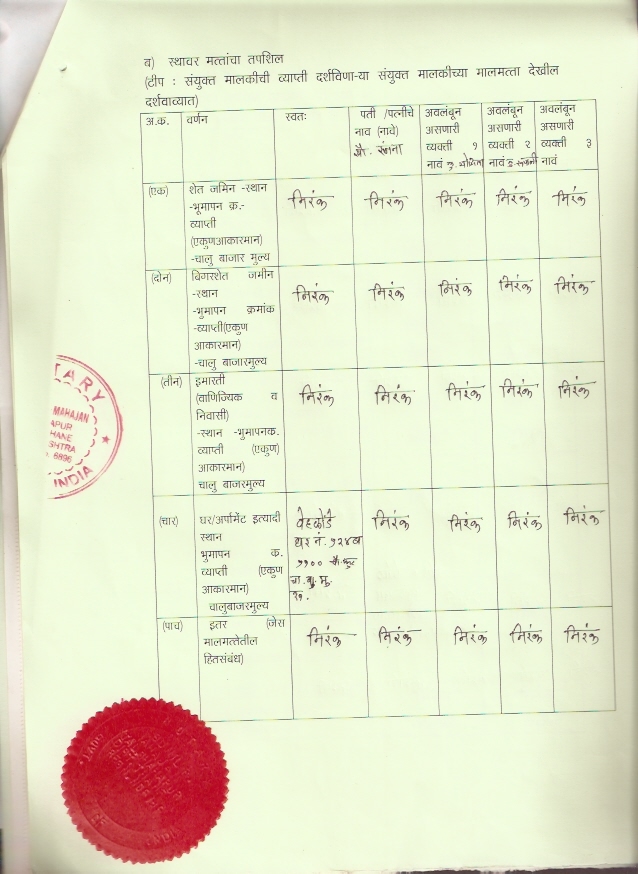 ब) स्थावर मत्तांचा तपशिल
(टीप : संयुक्त मालकीची व्याप्ती दर्शविणा-या संयुक्त मालकीच्या मालमत्ता देखील
दर्शवाव्यात)
अ.क. वर्णन स्वतः पती /पत्नीचे नाव (नावे) सौ. रंजना अवलंबून असणारी व्यक्ती १ नावं कु. अवलंबून असणारी व्यक्ती २ नावं अवलंबून असणारी व्यक्ती ३ नावं
(एक) शेत जमिन -स्थान निरंक निरंक निरंक निरंक निरंक
-भूमापन क्र.-
व्याप्ती
(एकुणआकारमान)
-चालु बाजार मुल्य
(दोन) बिगरशेत जमीन
-स्थान निरंक निरंक निरंक निरंक निरंक
-भुमापन क्रमांक
-व्याप्ती(एकुण
आकारमान)
-चालु बाजारमुल्य
(तीन) इमारती
(वाणिज्यिक व निरंक निरंक निरंक निरंक निरंक
निवासी)
-स्थान -भुमापनक.
व्याप्ती (एकुण)
आकारमान)
चालु बाजरमुल्य
(चार) घर/अर्पामेंट इत्यादी वेहळोंडे निरंक निरंक निरंक निरंक
स्थान घर नं. १२४व
भुमापन क. ११०० चौ. फुट
व्याप्ती (एकुण चा.बा.मु.
आकारमान)
चालुबाजरमुल्य
(पाच) इतर (जेस निरंक निरंक निरंक निरंक निरंक
मालगत्तेतील
हितसंबंध)
TARY
MAHAJAN
APUR
HANE
SHTRA
6896
INDIA